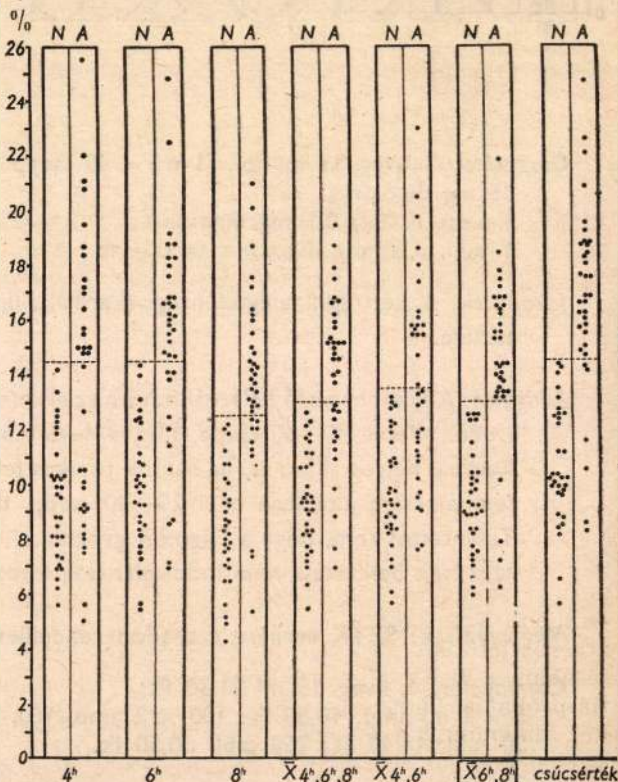 %
N A N A N A N A N A N A N A
26
24
22
20
18
16
14
12
10
8
6
4
2
0
4ʰ 6ʰ 8ʰ X̄ 4ʰ,6ʰ,8ʰ X̄ 4ʰ,6ʰ X̄ 6ʰ,8ʰ csúcsérték